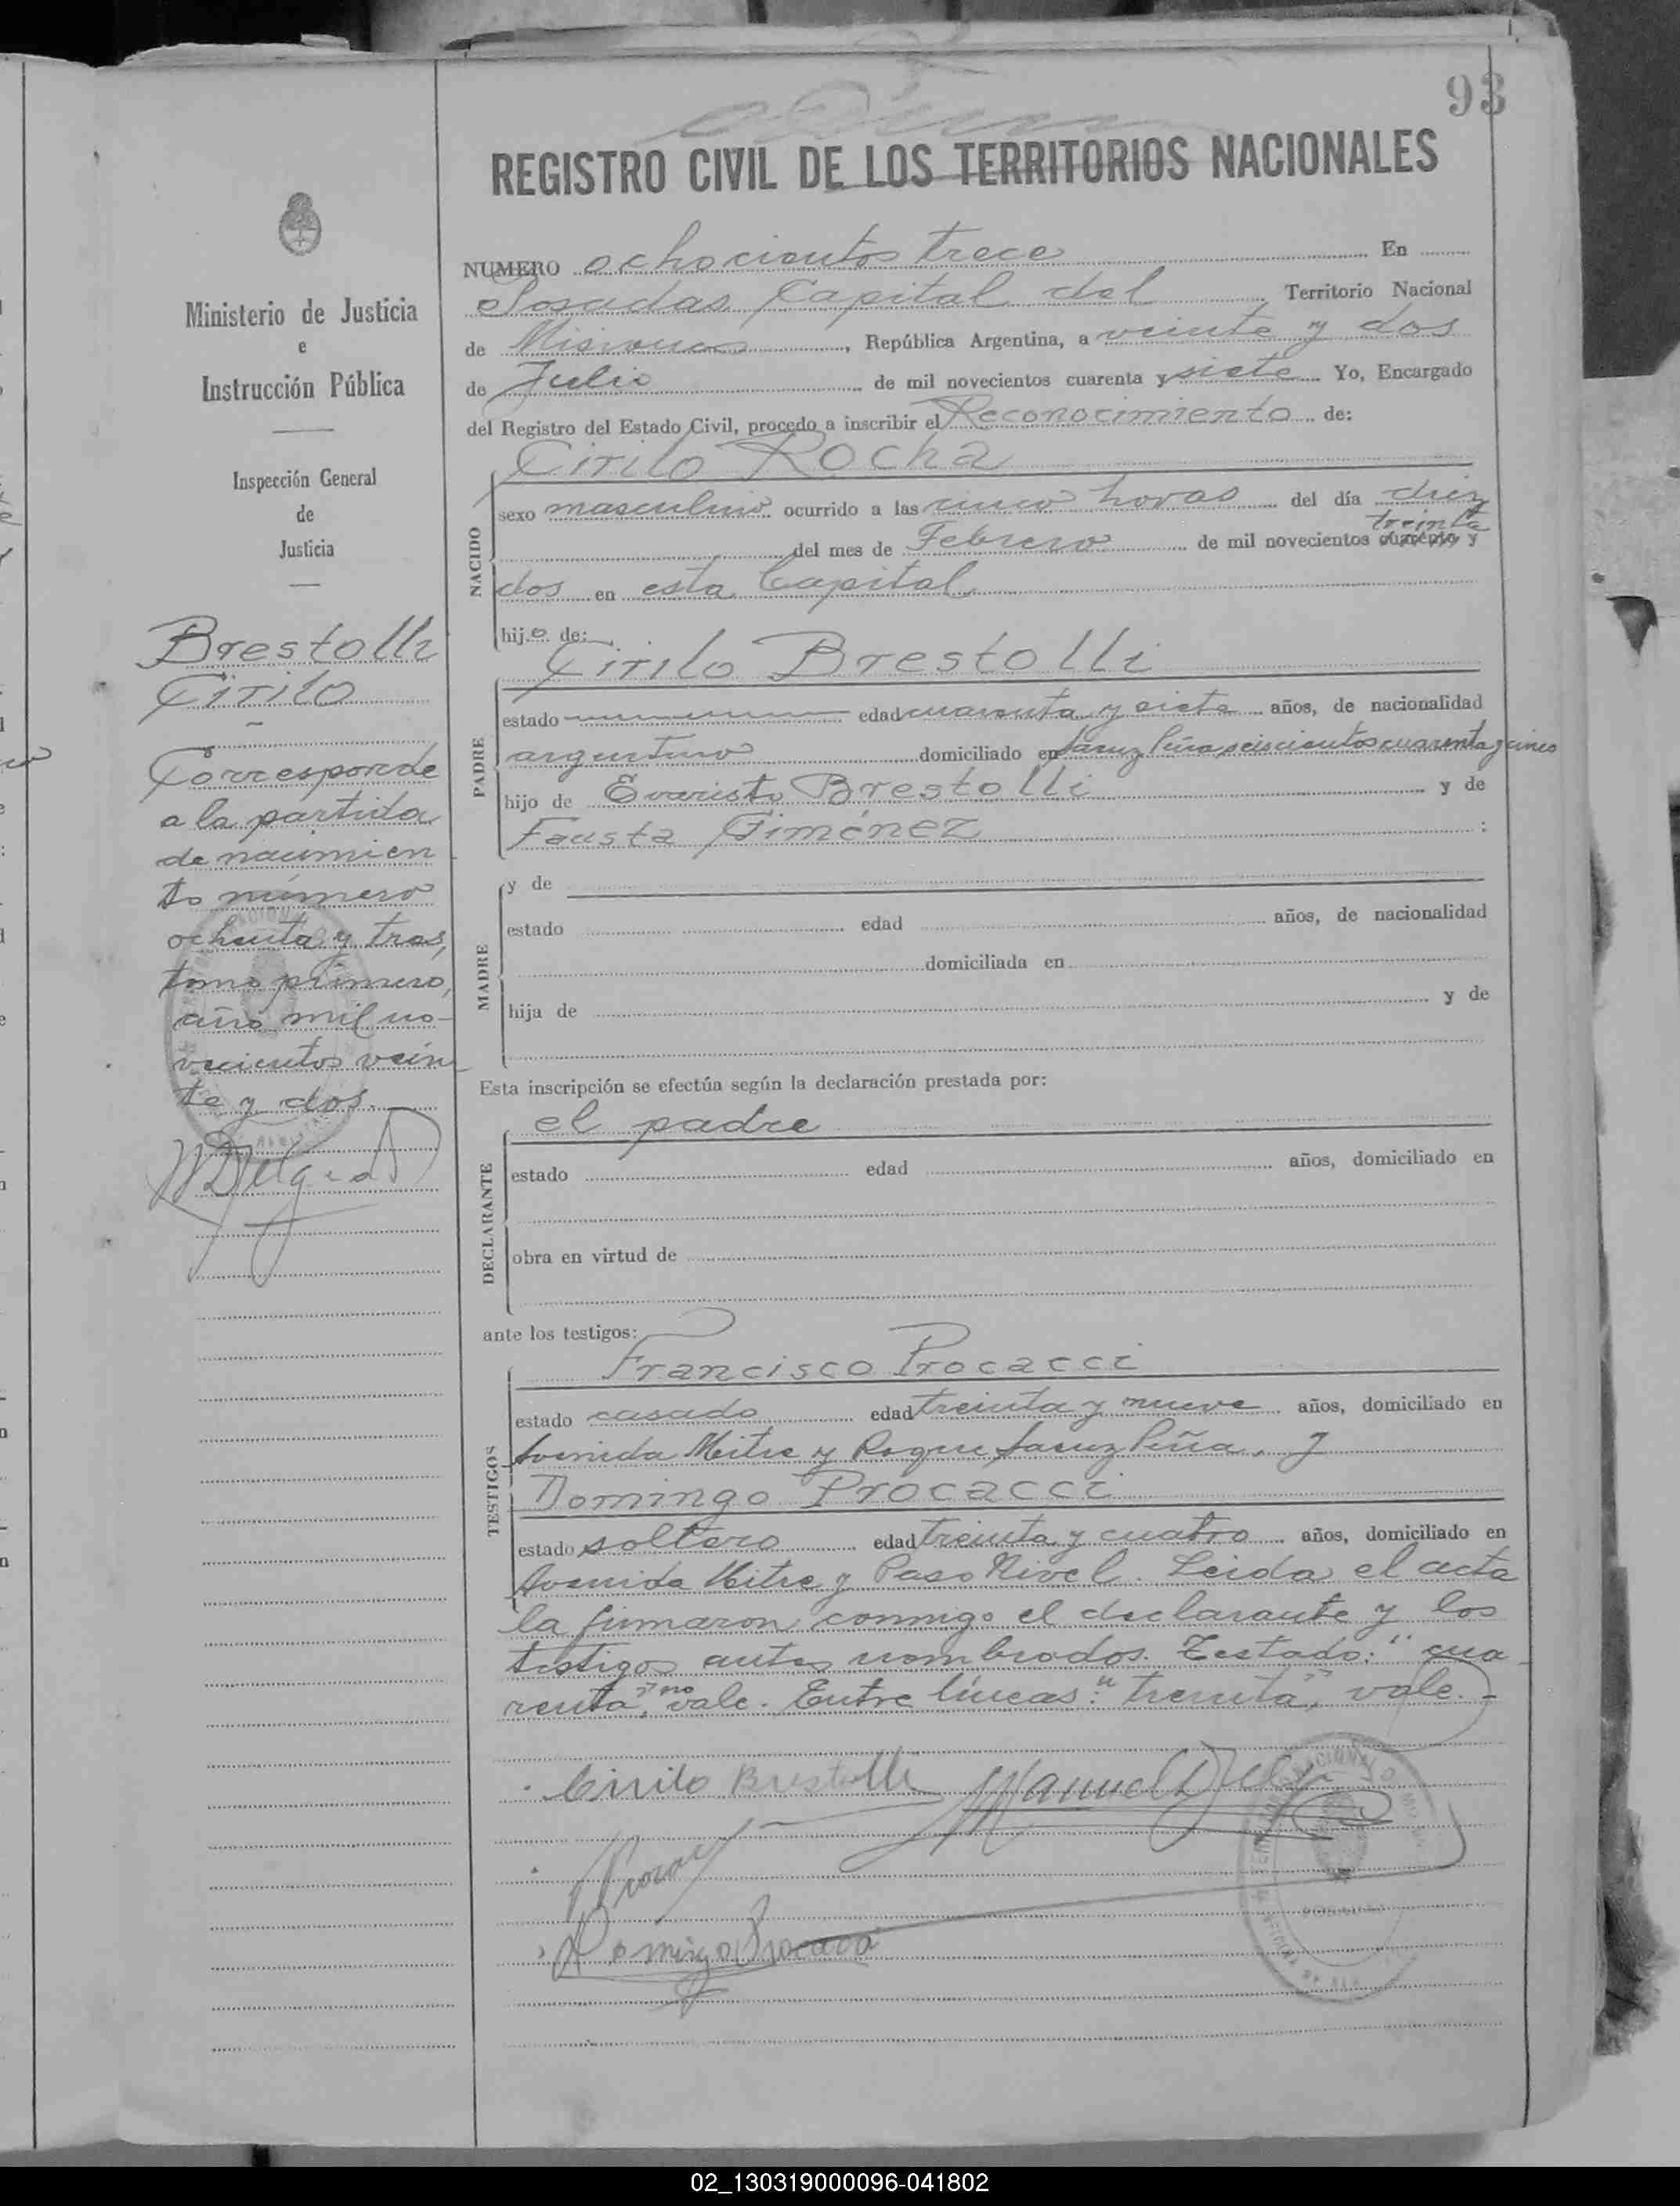 93
REGISTRO CIVIL DE LOS TERRITORIOS NACIONALES
NUMERO ochocientos trece En
Posadas Capital del Territorio Nacional
de Misiones, República Argentina, a veinte y dos
de Julio de mil novecientos cuarenta y siete Yo, Encargado
del Registro del Estado Civil, procedo a inscribir el Reconocimiento de:
Cirilo Rocha
NACIDO
sexo masculino ocurrido a las cinco horas del día diez
treinta
del mes de Febrero de mil novecientos cuarenta y
dos en esta Capital
hijo de:
Cirilo Brestolli
PADRE
estado edad cuarenta y siete años, de nacionalidad
argentino domiciliado en Saenz Peña seiscientos cuarenta y cinco
hijo de Evaristo Brestolli y de
Fausta Giménez :
MADRE
y de
estado edad años, de nacionalidad
domiciliada en
hija de y de
Esta inscripción se efectúa según la declaración prestada por:
el padre
DECLARANTE
estado edad años, domiciliado en
obra en virtud de
ante los testigos:
Francisco Procacci
TESTIGOS
estado casado edad treinta y nueve años, domiciliado en
Avenida Mitre y Roque Saenz Peña, y
Domingo Procacci
estado soltero edad treinta y cuatro años, domiciliado en
Avenida Mitre y Paso Nivel. Leida el acta
la firmaron conmigo el declarante y los
testigos antes nombrados. Testado: "cua
renta", no vale. Entre líneas: "treinta", vale.-
Cirilo Brestolli
Manuel Delg
Domingo Procacci
Ministerio de Justicia
e
Instrucción Pública
Inspección General
de
Justicia
Brestolli
Cirilo
-
Corresponde
a la partida
de nacimien
to número
ochenta y tres,
tomo primero,
año mil no-
vecientos vein
te y dos.
MDelgado
02_130319000096-041802